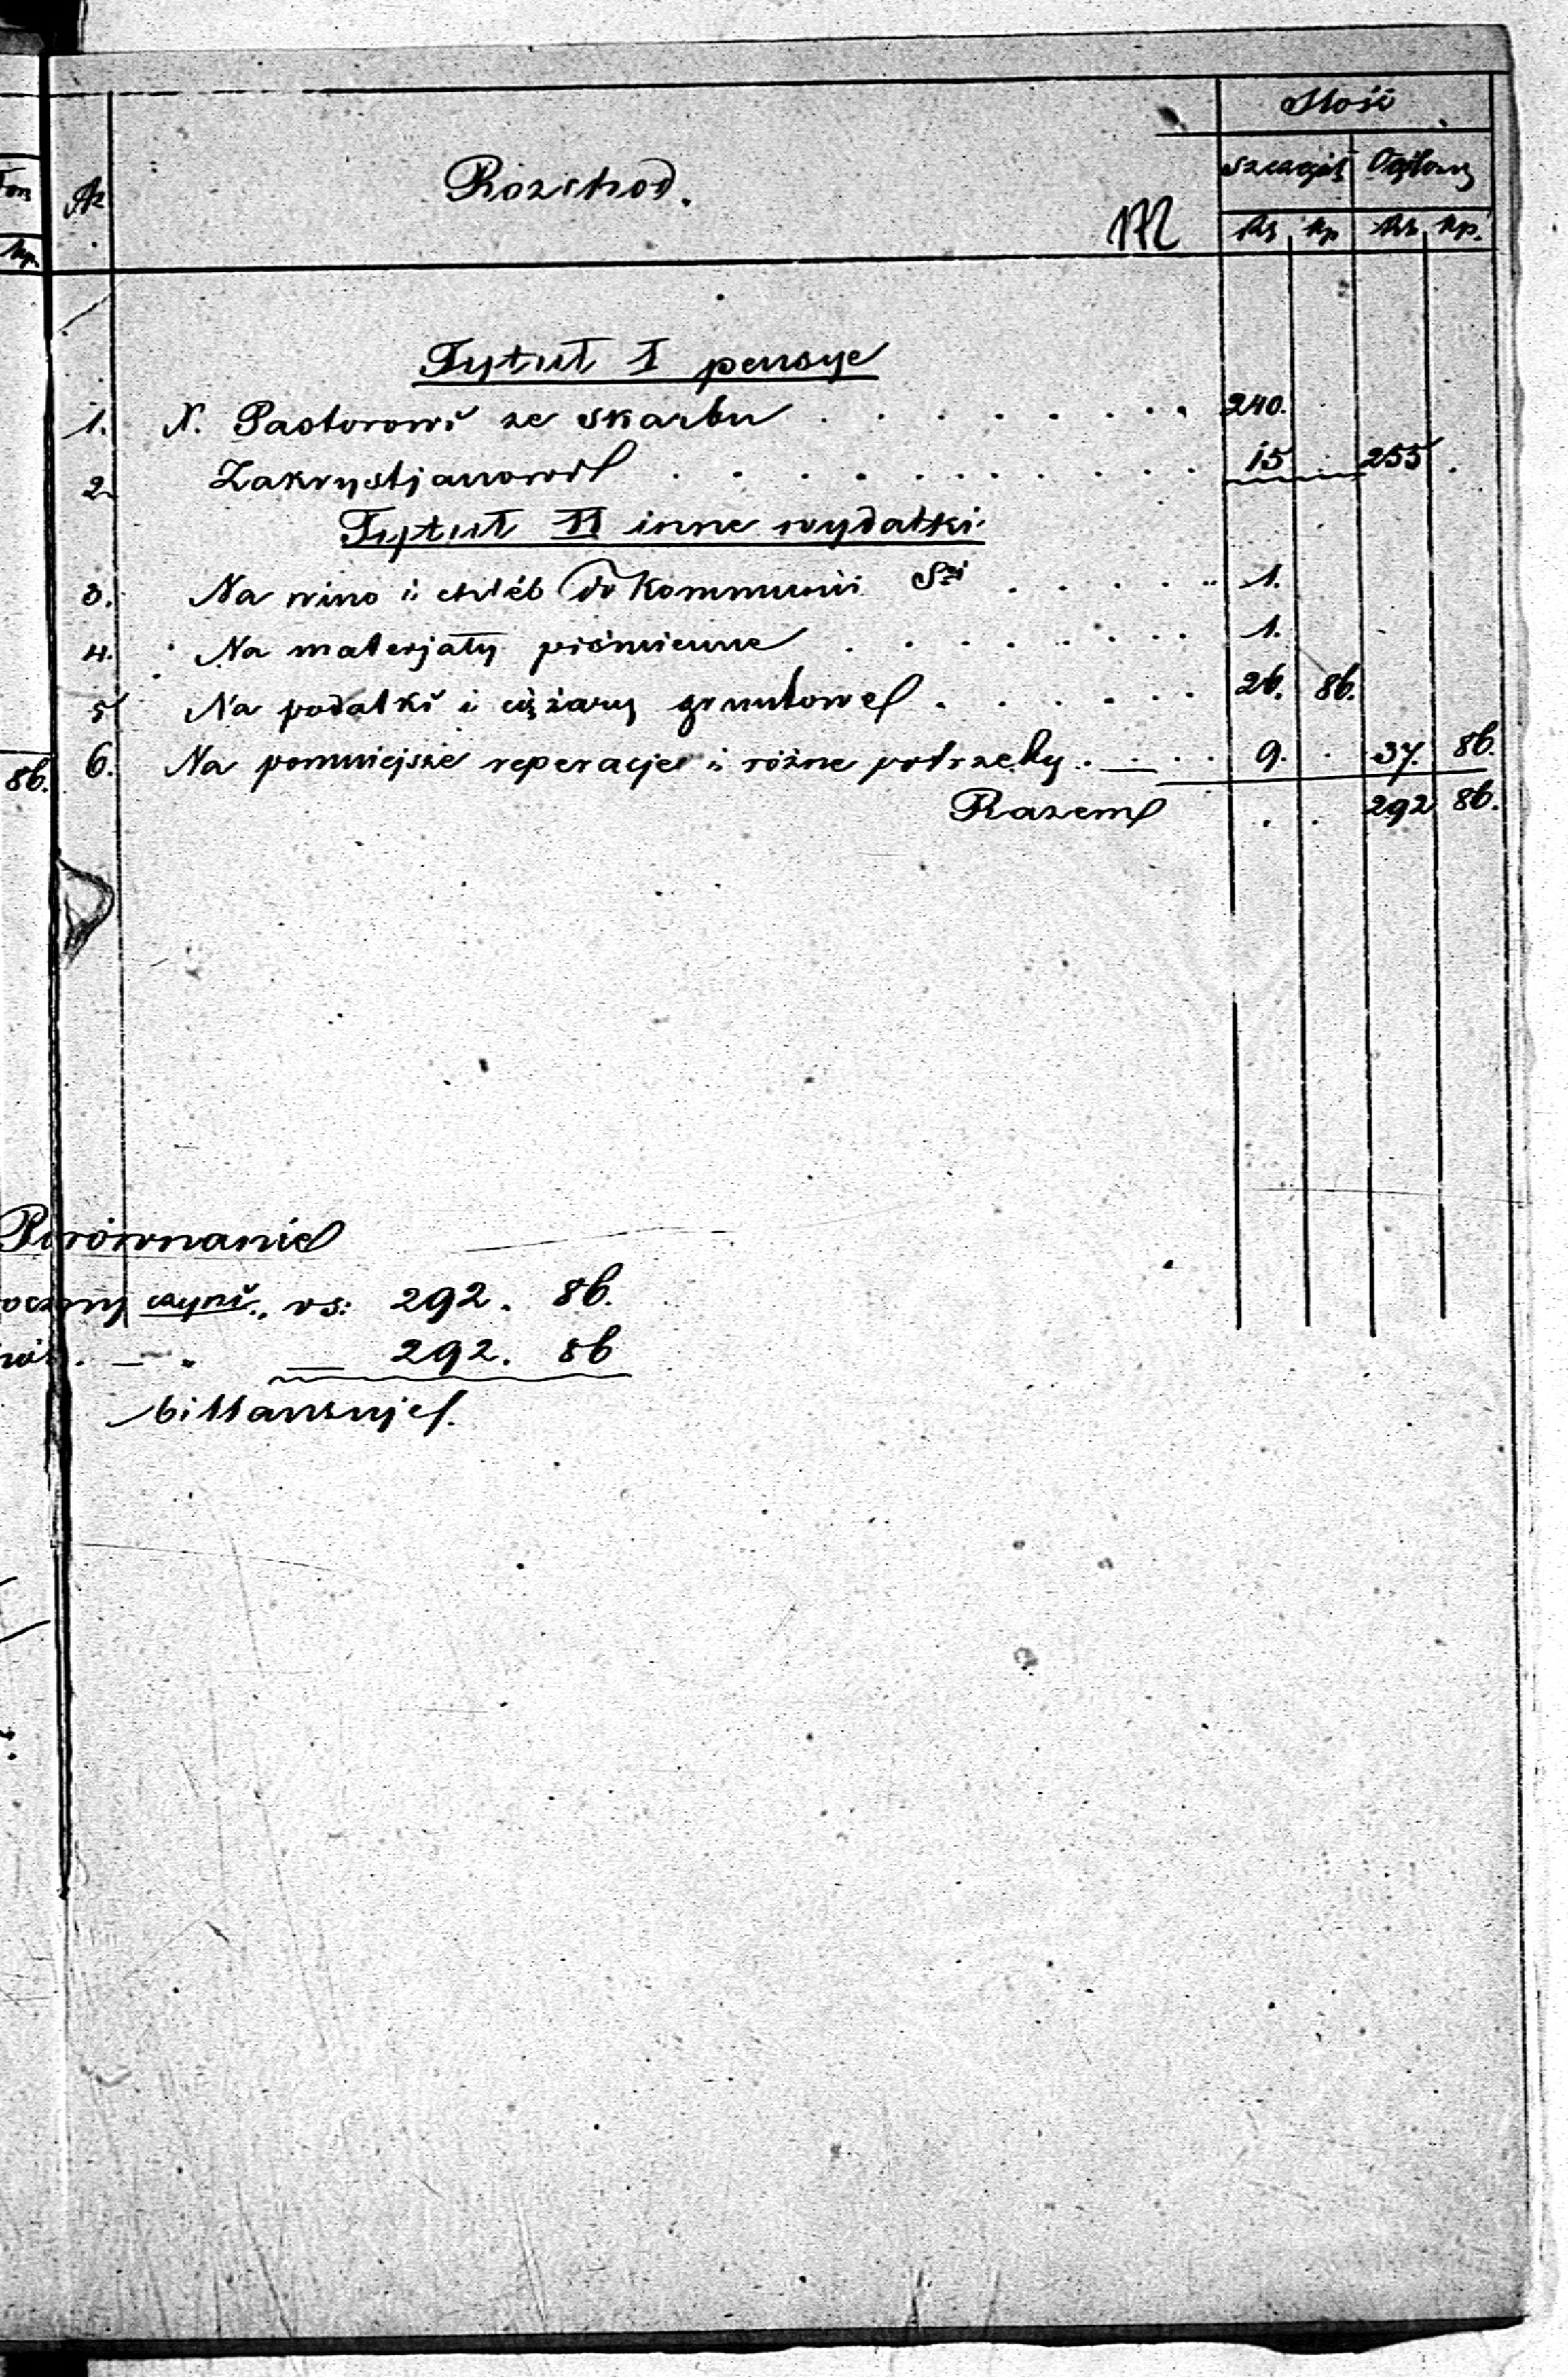 Ilość
№ Rozchod. szczegół Ogólow
172 Rs kp Rs. kp.
Tytuł I pensye
1. X. Pastorowi ze skarbu . . . . . . . . 240.
2 Zakrystjanowi . . . . . . . . . . 15 . 255 .
Tytuł II inne wydatki.
3. Na wino i chléb do Kommunii Sej . . . . . 1.
4. Na materjały piśmienne . . . . . . . 1.
5 Na podatki i ciężary gruntowe . . . . . . 26. 86.
6. Na pomniejsze reperacje i różne potrzeby . . . . 9. . 37. 86.
86.
Razem . . 292 86.
Porównanie
czyni., rs: 292. 86.
292. 86
billansuje.